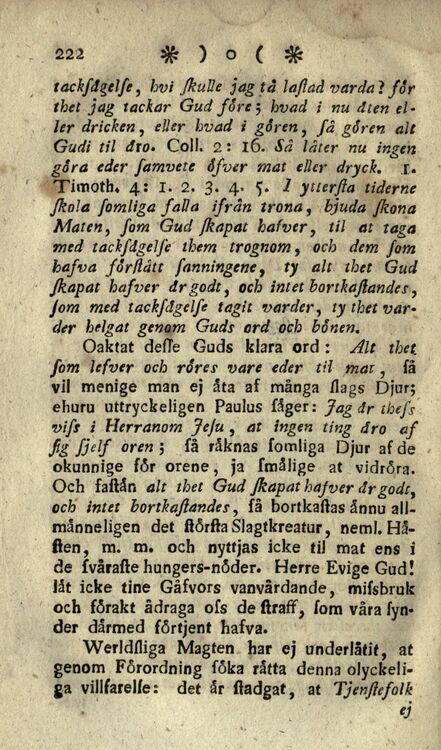 222 ※ ) o ( ※
tackſågelſe, hvi ſkulle jag tå laſtad varda? fôr
thet jag tackar Gud fôre; hvad i nu åten el-
ler dricken, eller hvad i gôren, ſå gôren alt
Gudi til åro. Coll. 2: 16. Så låter nu ingen
gôra eder ſamvete ôfver mat eller dryck. 1.
Timoth. 4: 1. 2. 3. 4. 5. I ytterſta tiderne
ſkola ſomliga falla ifrån trona, bjuda ſkona
Maten, ſom Gud ſkapat hafver, til at taga
med tackſågelſe them trognom, och dem ſom
hafva fôrſtått ſanningene, ty alt thet Gud
ſkapat hafver år godt, och intet bortkaſtandes,
ſom med tackſågelſe tagit varder, ty thet var-
der helgat genom Guds ord och bônen.
Oaktat deſſe Guds klara ord: Alt thet
ſom lefver och rôres vare eder til mat, ſå
vil menige man ej åta af många ſlags Djur;
ehuru uttryckeligen Paulus ſåger: Jag år theſs
viſs i Herranom Jeſu, at ingen ting åro af
ſig ſjelf oren; ſå råknas ſomliga Djur af de
okunnige fôr orene, ja ſmålige at vidrôra.
Och faſtån alt thet Gud ſkapat hafver år godt,
och intet bortkaſtandes, ſå bortkaſtas ånnu all-
månneligen det ſtôrſta Slagtkreatur, neml. Hå-
ſten, m. m. och nyttjas icke til mat ens i
de ſvåraſte hungers-nôder. Herre Evige Gud!
låt icke tine Gåfvors vanvårdande, miſsbruk
och fôrakt ådraga oſs de ſtraff, ſom våra ſyn-
der dårmed fôrtjent hafva.
Werldſliga Magten har ej underlåtit, at
genom Fôrordning ſôka råtta denna olyckeli-
ga villfarelſe: det år ſtadgat, at Tjenſtefolk
ej